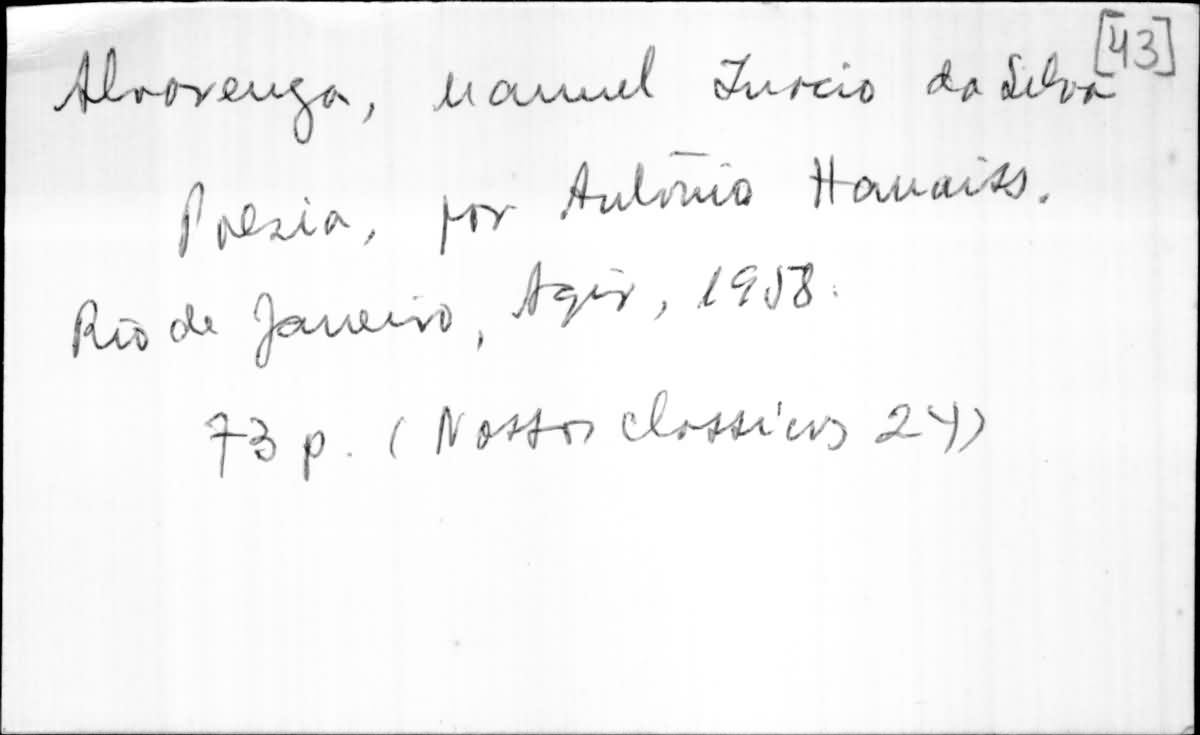 Alvarenga, Manuel Inacio da Silva [43]
Poesia, por Antônio Houaiss.
Rio de Janeiro, Agir, 1958.
73 p. (Nossos classicos 24)